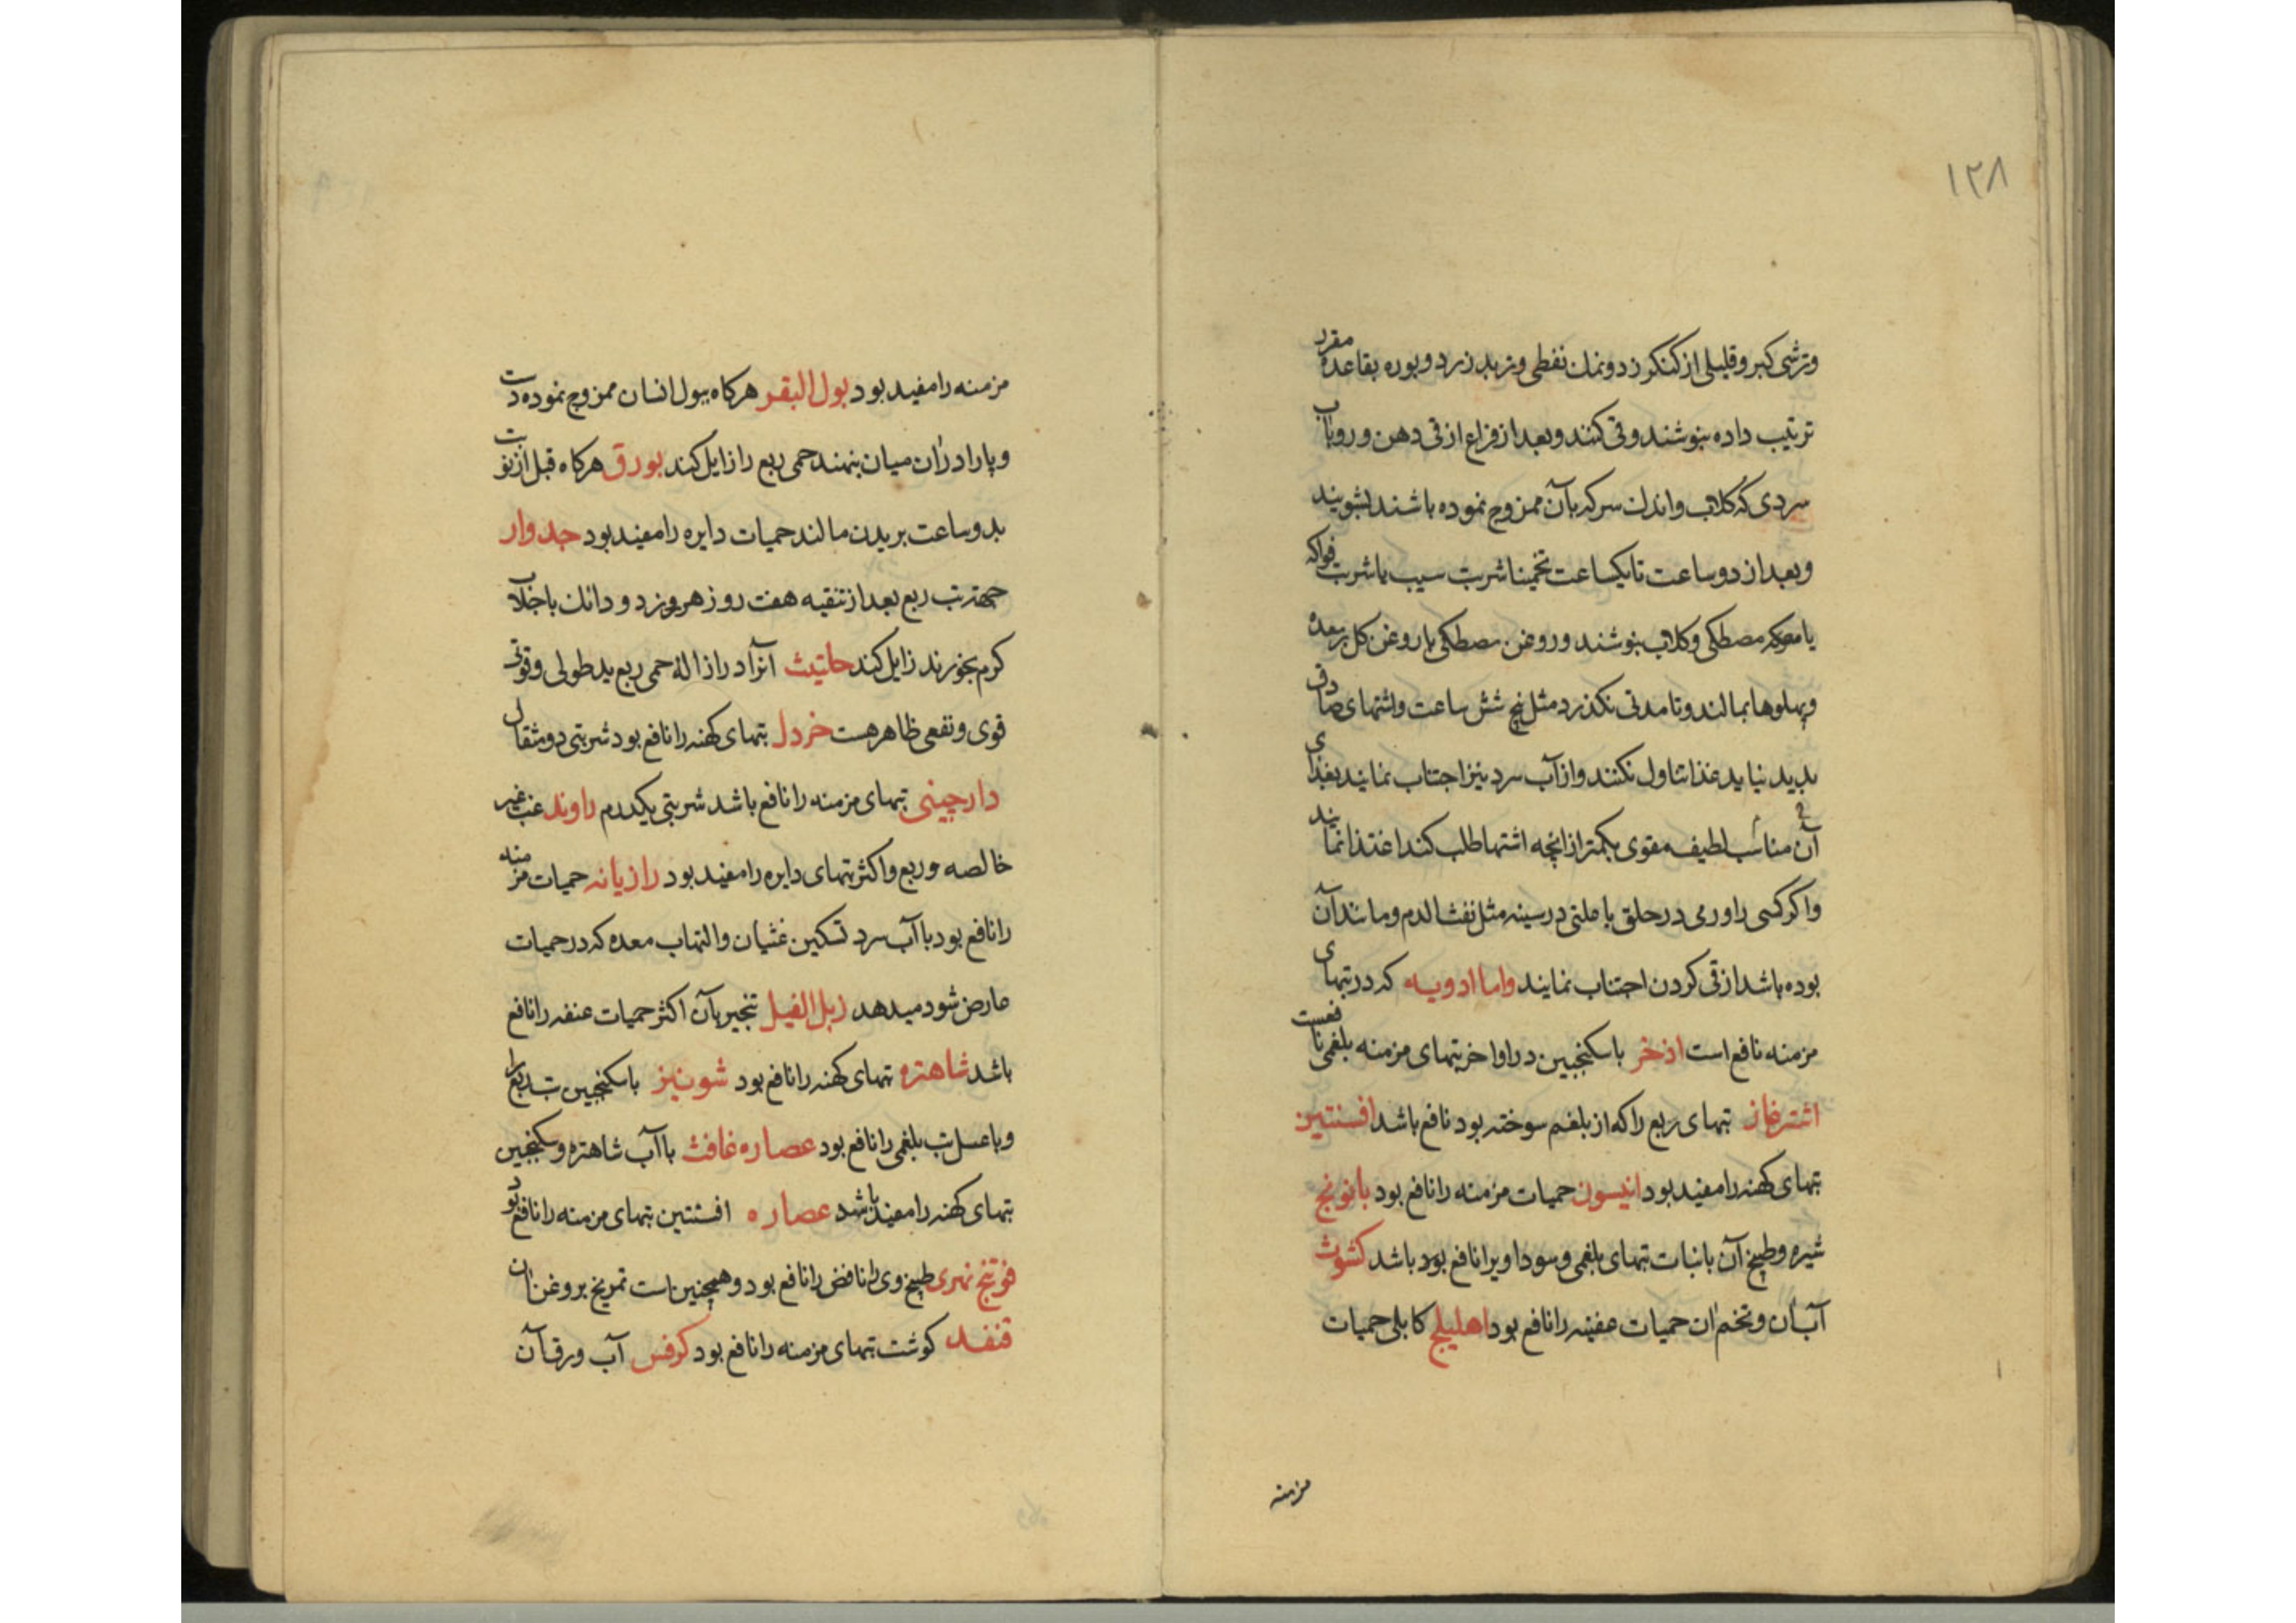 ۱۲۸
وترشی کبر و قلیلی از کنکرزد و نمک نفطی و تربد زرد و بوره بقاعده مقرر
ترتیب داده بنوشند و قی کنند و بعد از فراغ از قی دهن و رو بآب
سردی که کلاب و اندک سرکه بآن ممزوج نموده باشند بشویند
و بعد از دو ساعت تا یکساعت تخمینا شربت سیب یا شربت فواکه
یا مصطکی و کلاب بنوشند و روغن مصطکی یا روغن کل بر معده
و پهلوها بمالند و تا مدتی نکذرد مثل پنج شش ساعت و اشتهای صادق
پدید نیاید غذا تناول نکنند و از آب سرد نیز اجتناب نمایند بغذای
آن مناسب لطیف مقوی بکمتر از انچه اشتها طلب کند اغتذا نمایند
و اکر کسی را ورمی در حلق یا علتی در سینه مثل نفث الدم و مانند آن
بوده باشد از قی کردن اجتناب نمایند واما ادویه که در تبهای
مزمنه نافع است اذخر با سکنجبین در اواخر تبهای مزمنه بلغمی نافعست
اشترغاز تبهای ربع را که از بلغم سوخته بود نافع باشد افسنتین
تبهای کهنه را مفید بود انیسون حمیات مزمنه را نافع بود بابونج
شیره و طبیخ آن بانبات تبهای بلغمی و سوداویرا نافع بود باشد کشوث
آب آن و تخم ان حمیات عفینه را نافع بود اهلیلج کابلی حمیات
مزمنه
مزمنه را مفید بود بول البقر هرکاه ببول انسان ممزوج نموده دست
و پا را در ان میان بنهند حمی ربع را زایل کند بورق هرکاه قبل از نوبت
بدو ساعت بر بدن مالند حمیات دایره را مفید بود جدوار
جهة تب ربع بعد از تنقیه هفت روز هر روزد و دانک با جلاب
کرم بخورند زایل کند حلتیث آنرا در ازالهٔ حمی ربع ید طولی و قوتی
قوی و نفعی ظاهر هست خردل تبهای کهنه را نافع بود شربتی دو مثقال
دارچینی تبهای مزمنه را نافع باشد شربتی یکدرم راوند غب غیر
خالصه و ربع و اکثر تبهای دایره را مفید بود رازیانه حمیات مزمنه
را نافع بود با آب سرد تسکین غثیان و التهاب معده که در حمیات
عارض شود میدهد زبل الفیل تبخیر بآن اکثر حمیات عنفه را نافع
باشد شاهتره تبهای کهنه را نافع بود شونیز با سکنجبین تب ربع را
و با عسل تب بلغمی را نافع بود عصاره غافث با آب شاهتره و سکنجبین
تبهای کهنه را مفید باشد عصاره افسنتین تبهای مزمنه را نافع بود
فوتنج نهری طبیخ وی نافض را نافع بود و همچنین است تمریخ بروغن ان
قنفد کوشت تبهای مزمنه را نافع بود کرفس آب ورق آن